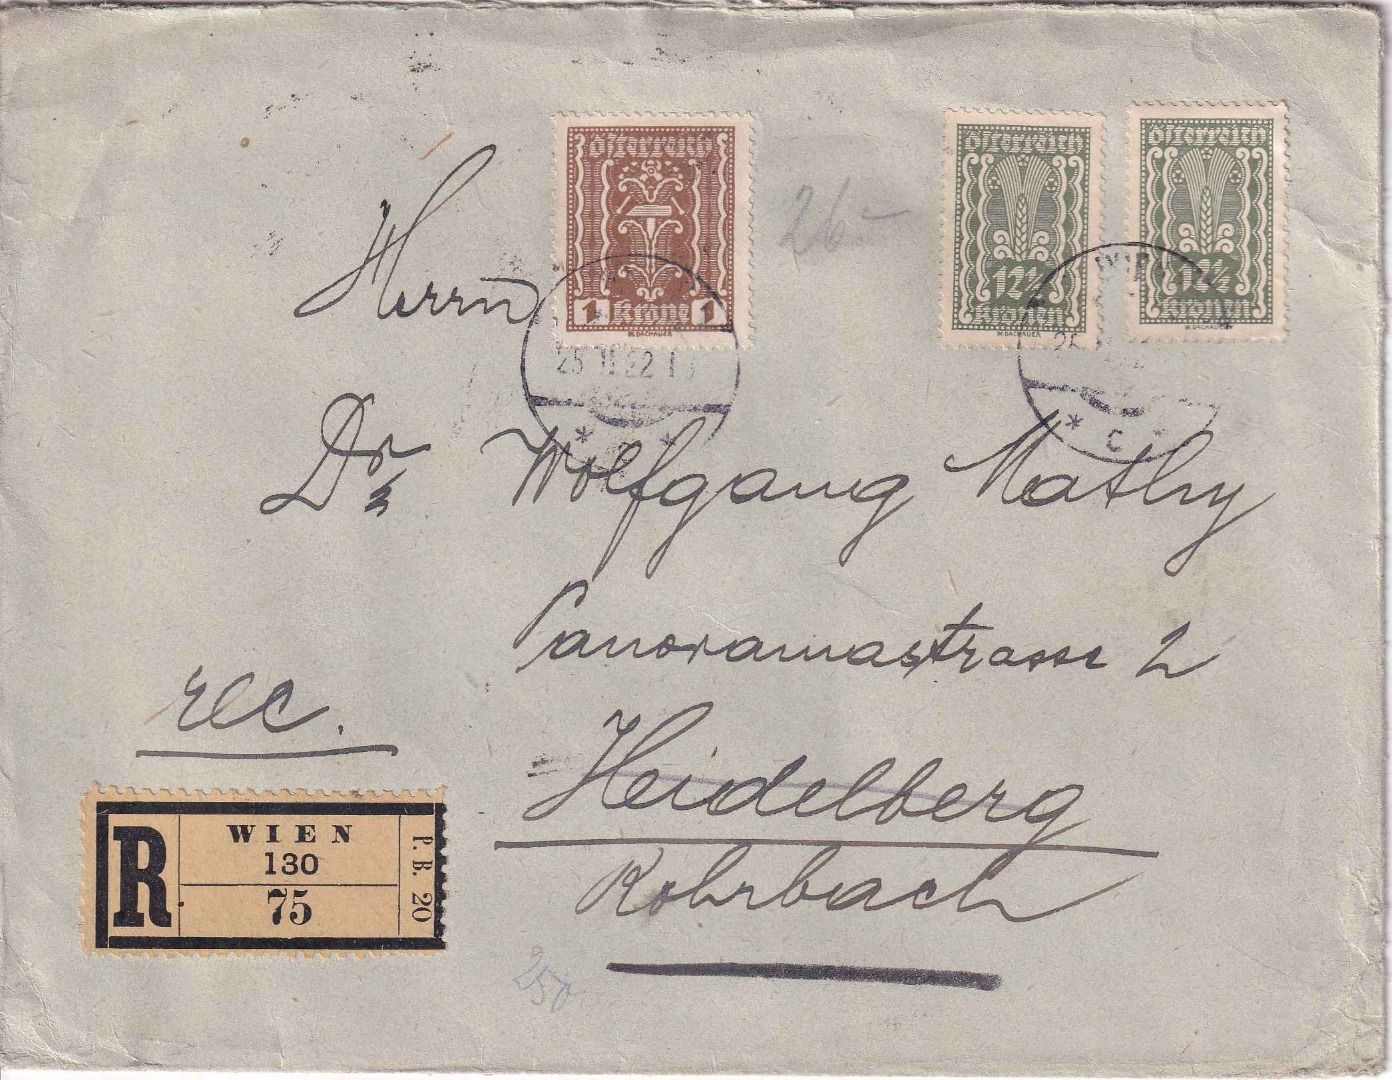 Österreich
1 Krone 1
W. DACHAUER
26-
Österreich
12½
Kronen
W. DACHAUER
Österreich
12½
Kronen
W. DACHAUER
25 II 22
WIEN
25
* C *
Herrn
Dr Wolfgang Mathy
Panoramastrasse 2
rec.
Heidelberg
Rohrbach
R
WIEN
130
75
P. B. 20
250